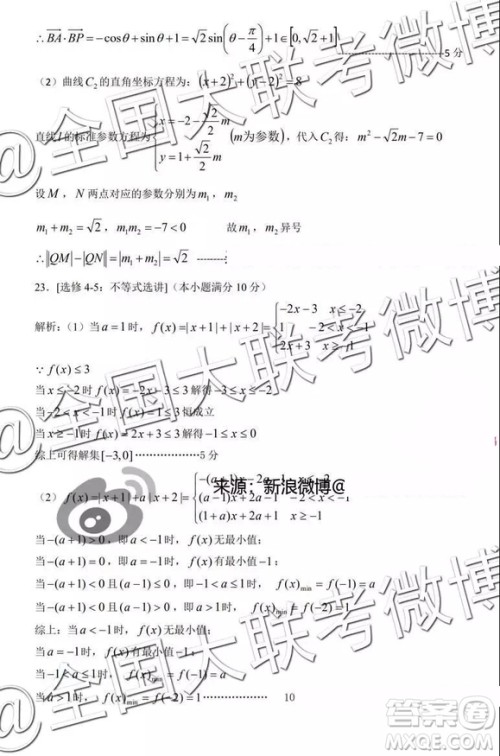 ∴ BA·BP = −cosθ + sinθ + 1 = √2 sin(θ − π/4) + 1 ∈ [0, √2 + 1] --------5 分
（2）曲线 C₂ 的直角坐标方程为：(x+2)² + (y−2)² = 8
直线 l 的标准参数方程为 { x = −2 − (√2/2)m, y = 1 + (√2/2)m （m 为参数），代入 C₂ 得：m² − √2m − 7 = 0
设 M，N 两点对应的参数分别为 m₁，m₂
m₁ + m₂ = √2，m₁m₂ = −7 < 0 故 m₁，m₂ 异号
∴ ||QM| − |QN|| = |m₁ + m₂| = √2 --------
23. [选修 4-5：不等式选讲]（本小题满分 10 分）
解析：（1）当 a = 1 时，f(x) = |x+1| + |x+2| = { −2x−3 x ≤ −2; 1 −2 < x < −1; 2x+3 x ≥ −1
∵ f(x) ≤ 3
当 x ≤ −2 时 f(x) = −2x − 3 ≤ 3 解得 −3 ≤ x ≤ −2
当 −2 < x < −1 时 f(x) = 1 ≤ 3 恒成立
当 x ≥ −1 时 f(x) = 2x + 3 ≤ 3 解得 −1 ≤ x ≤ 0
综上可得解集 [−3,0] ………………5 分
来源：新浪微博@
（2）f(x) = |x+1| + a|x+2| = { −(a+1)x − 2a − 1; (a−1)x + 2a − 1 −2 < x < −1; (1+a)x + 2a + 1 x ≥ −1
当 −(a+1) > 0，即 a < −1 时，f(x) 无最小值；
当 −(a+1) = 0，即 a = −1 时，f(x) 有最小值 −1；
当 −(a+1) < 0 且 (a−1) ≤ 0，即 −1 < a ≤ 1 时，f(x)min = f(−1) = a
当 −(a+1) < 0 且 (a−1) > 0，即 a > 1 时，f(x)min = f(−2) = 1
综上：当 a < −1 时，f(x) 无最小值；
当 a = −1 时，f(x) 有最小值 −1；
当 −1 < a ≤ 1 时，f(x)min = f(−1) = a
当 a > 1 时，f(x)min = f(−2) = 1 ……………… 10
@全国大联考微博
@全国大联考微博
答案圈